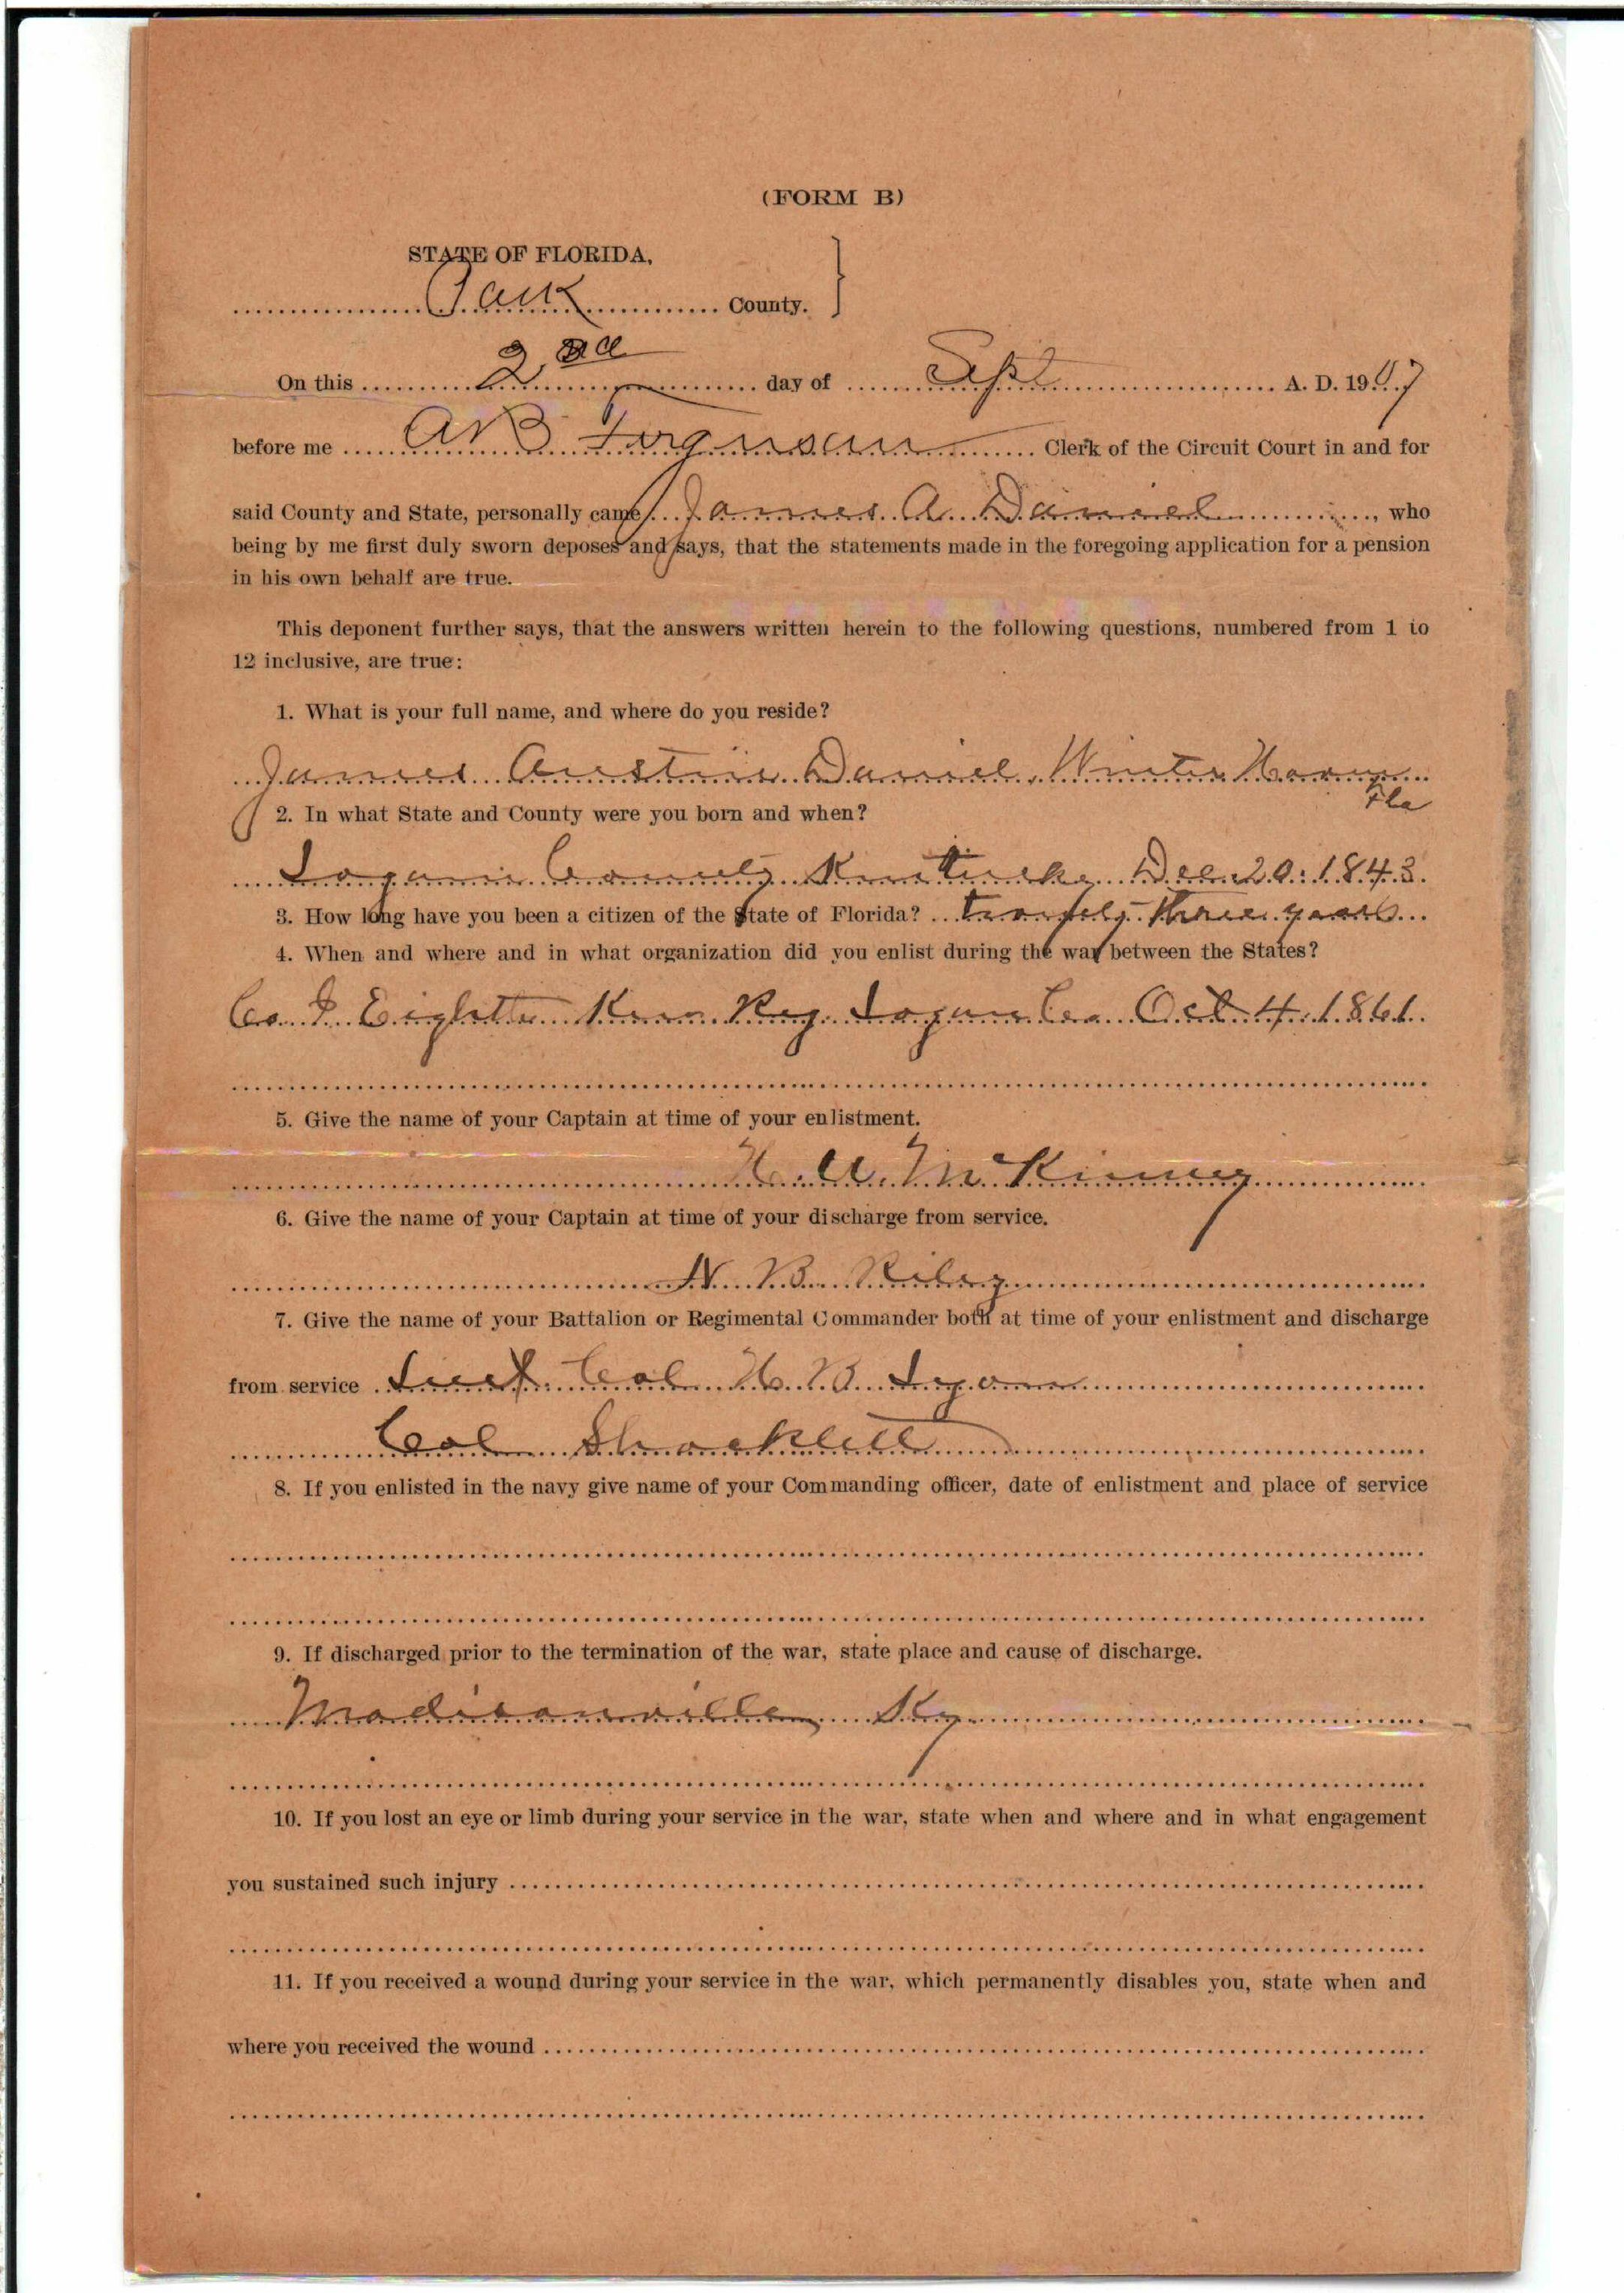 (FORM B)
STATE OF FLORIDA,
Polk County.
On this 2nd day of Sept A. D. 1907
before me A B Ferguson Clerk of the Circuit Court in and for
said County and State, personally came James A. Daniel, who
being by me first duly sworn deposes and says, that the statements made in the foregoing application for a pension
in his own behalf are true.
This deponent further says, that the answers written herein to the following questions, numbered from 1 to
12 inclusive, are true:
1. What is your full name, and where do you reside?
James Austin Daniel, Winter Haven
Fla
2. In what State and County were you born and when?
Logan County Kentucky Dec. 20. 1843.
3. How long have you been a citizen of the State of Florida? twenty-three years
4. When and where and in what organization did you enlist during the war between the States?
Co. Eighth Ken. Reg. Logan Co. Oct. 4. 1861.
5. Give the name of your Captain at time of your enlistment.
McKinney
6. Give the name of your Captain at time of your discharge from service.
B. Riley
7. Give the name of your Battalion or Regimental Commander both at time of your enlistment and discharge
from service Lieut. Col. H. B. Lyon
Col Shacklett
8. If you enlisted in the navy give name of your Commanding officer, date of enlistment and place of service
9. If discharged prior to the termination of the war, state place and cause of discharge.
Madisonville, Ky.
10. If you lost an eye or limb during your service in the war, state when and where and in what engagement
you sustained such injury
11. If you received a wound during your service in the war, which permanently disables you, state when and
where you received the wound